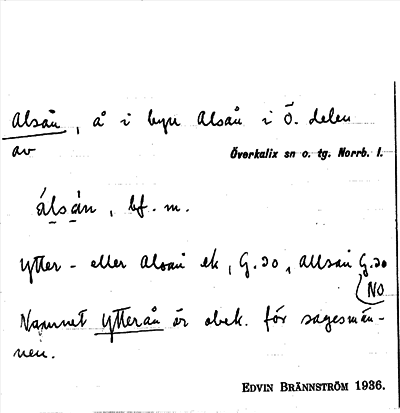 Alsån, å i byn Alsån i Ö. delen
av Överkalix sn o. tg. Norrb. l.
álsån, bf. m.
Ytter- eller Alsån ek, G.30, Allsån G.30
NO
Namnet Ytterån är obek. för sagesmän-
nen.
EDVIN BRÄNNSTRÖM 1936.